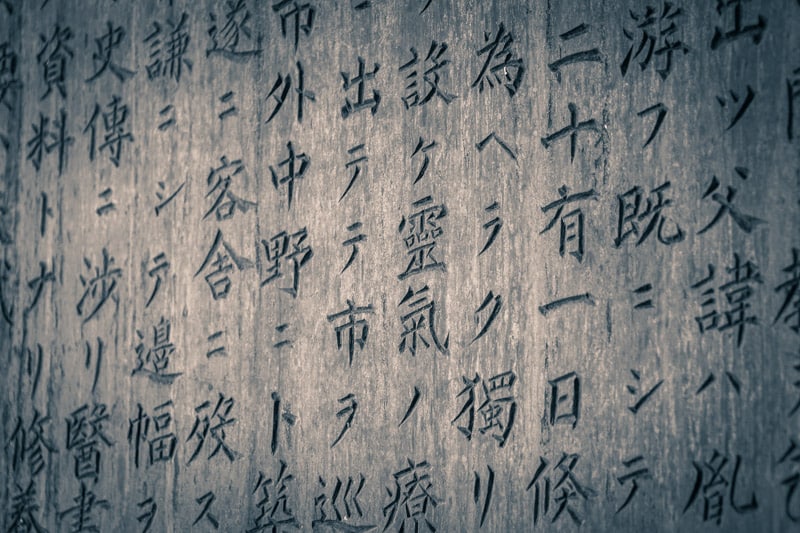 出ツ父諱ハ胤
游フ既ニシテ
二十有一日倏
為ヘラク獨リ
設ケ靈氣ノ療
出テテ市ヲ巡
市外中野ニト築
遂ニ客舎ニ歿ス
謙ニシテ邊幅ヲ
史傳ニ涉リ醫書
資料トナリ修養